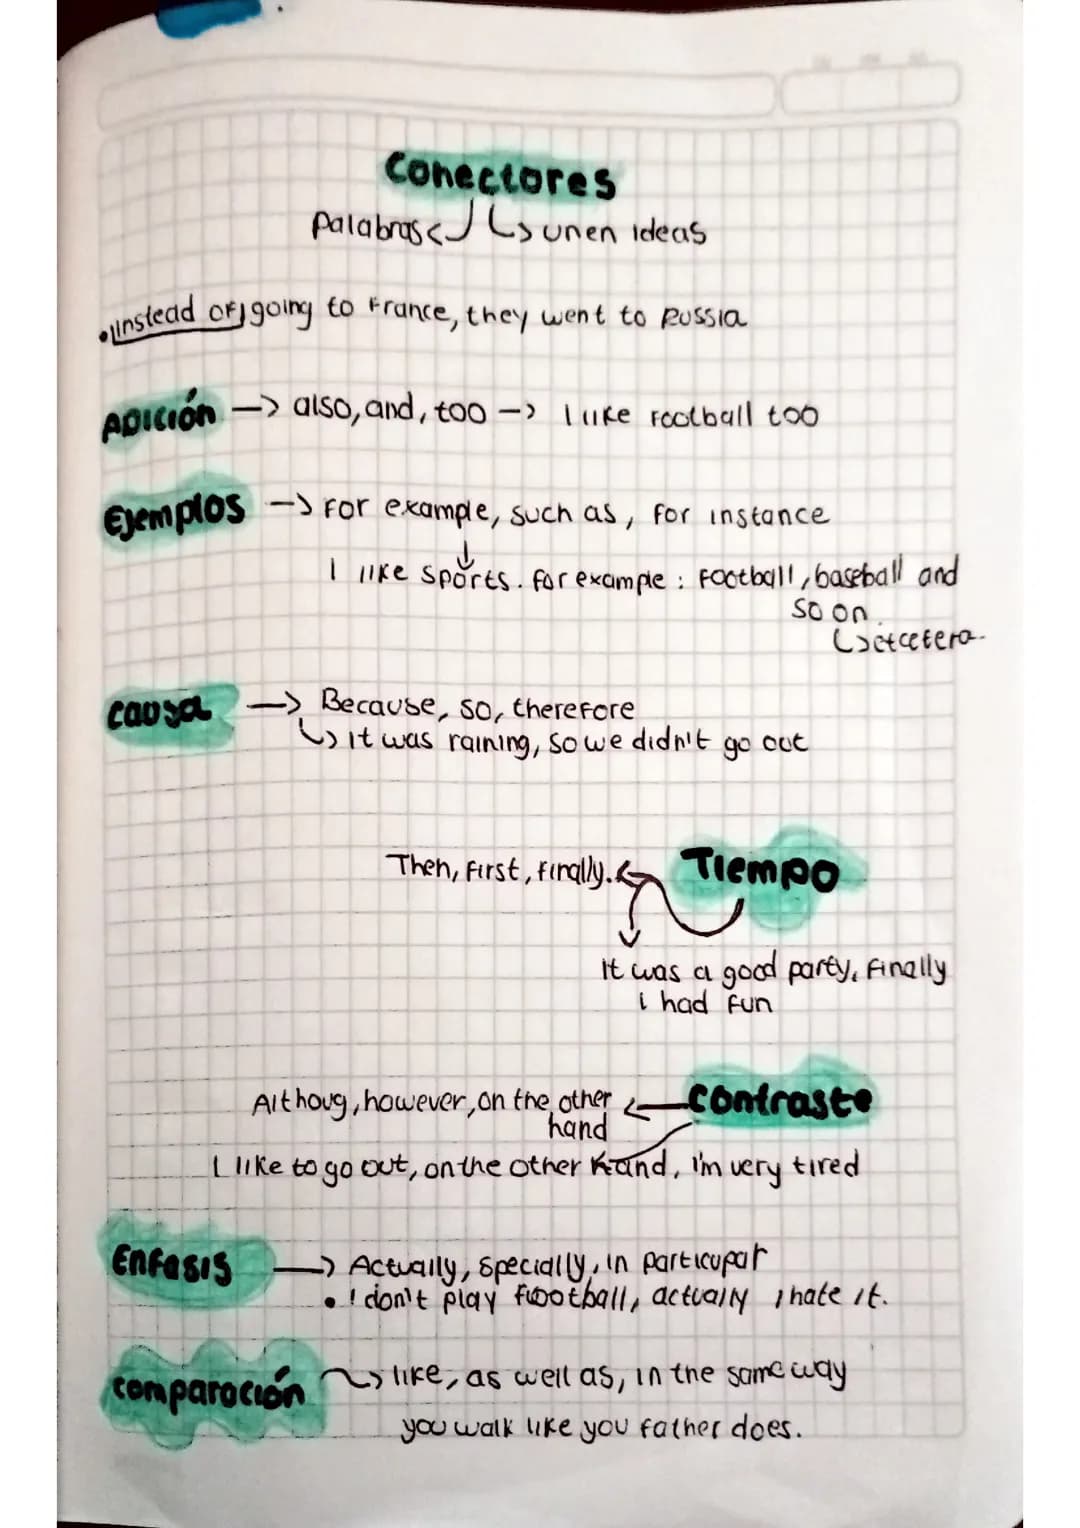 Conectores
Palabras unen ideas
instead of going to France, they went to Russia
Adición -> also, and, too -> I like Football too
Ejemplos -> For example, such as, for instance
I like sports. for example: Football, baseball and
so on.
etcetera.
causa -> Because, so, therefore
It was raining, so we didn't go out
Then, First, Finally. Tiempo
It was a good party, Finally
i had fun
Althoug, however, on the other contraste
hand
I like to go out, on the other hand, I'm very tired
Enfasis -> Actually, specially, in particupar
• I don't play football, actually I hate it.
comparación -> like, as well as, in the same way
you walk like you father does.